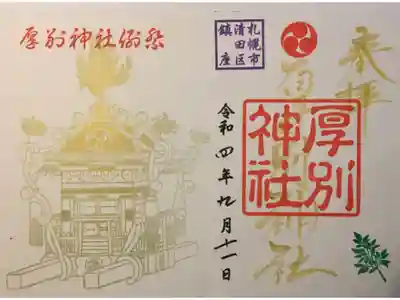 奉拝
厚別神社
厚別
神社
札幌市
清田区
鎮座
令和四年九月十一日
厚別神社例祭